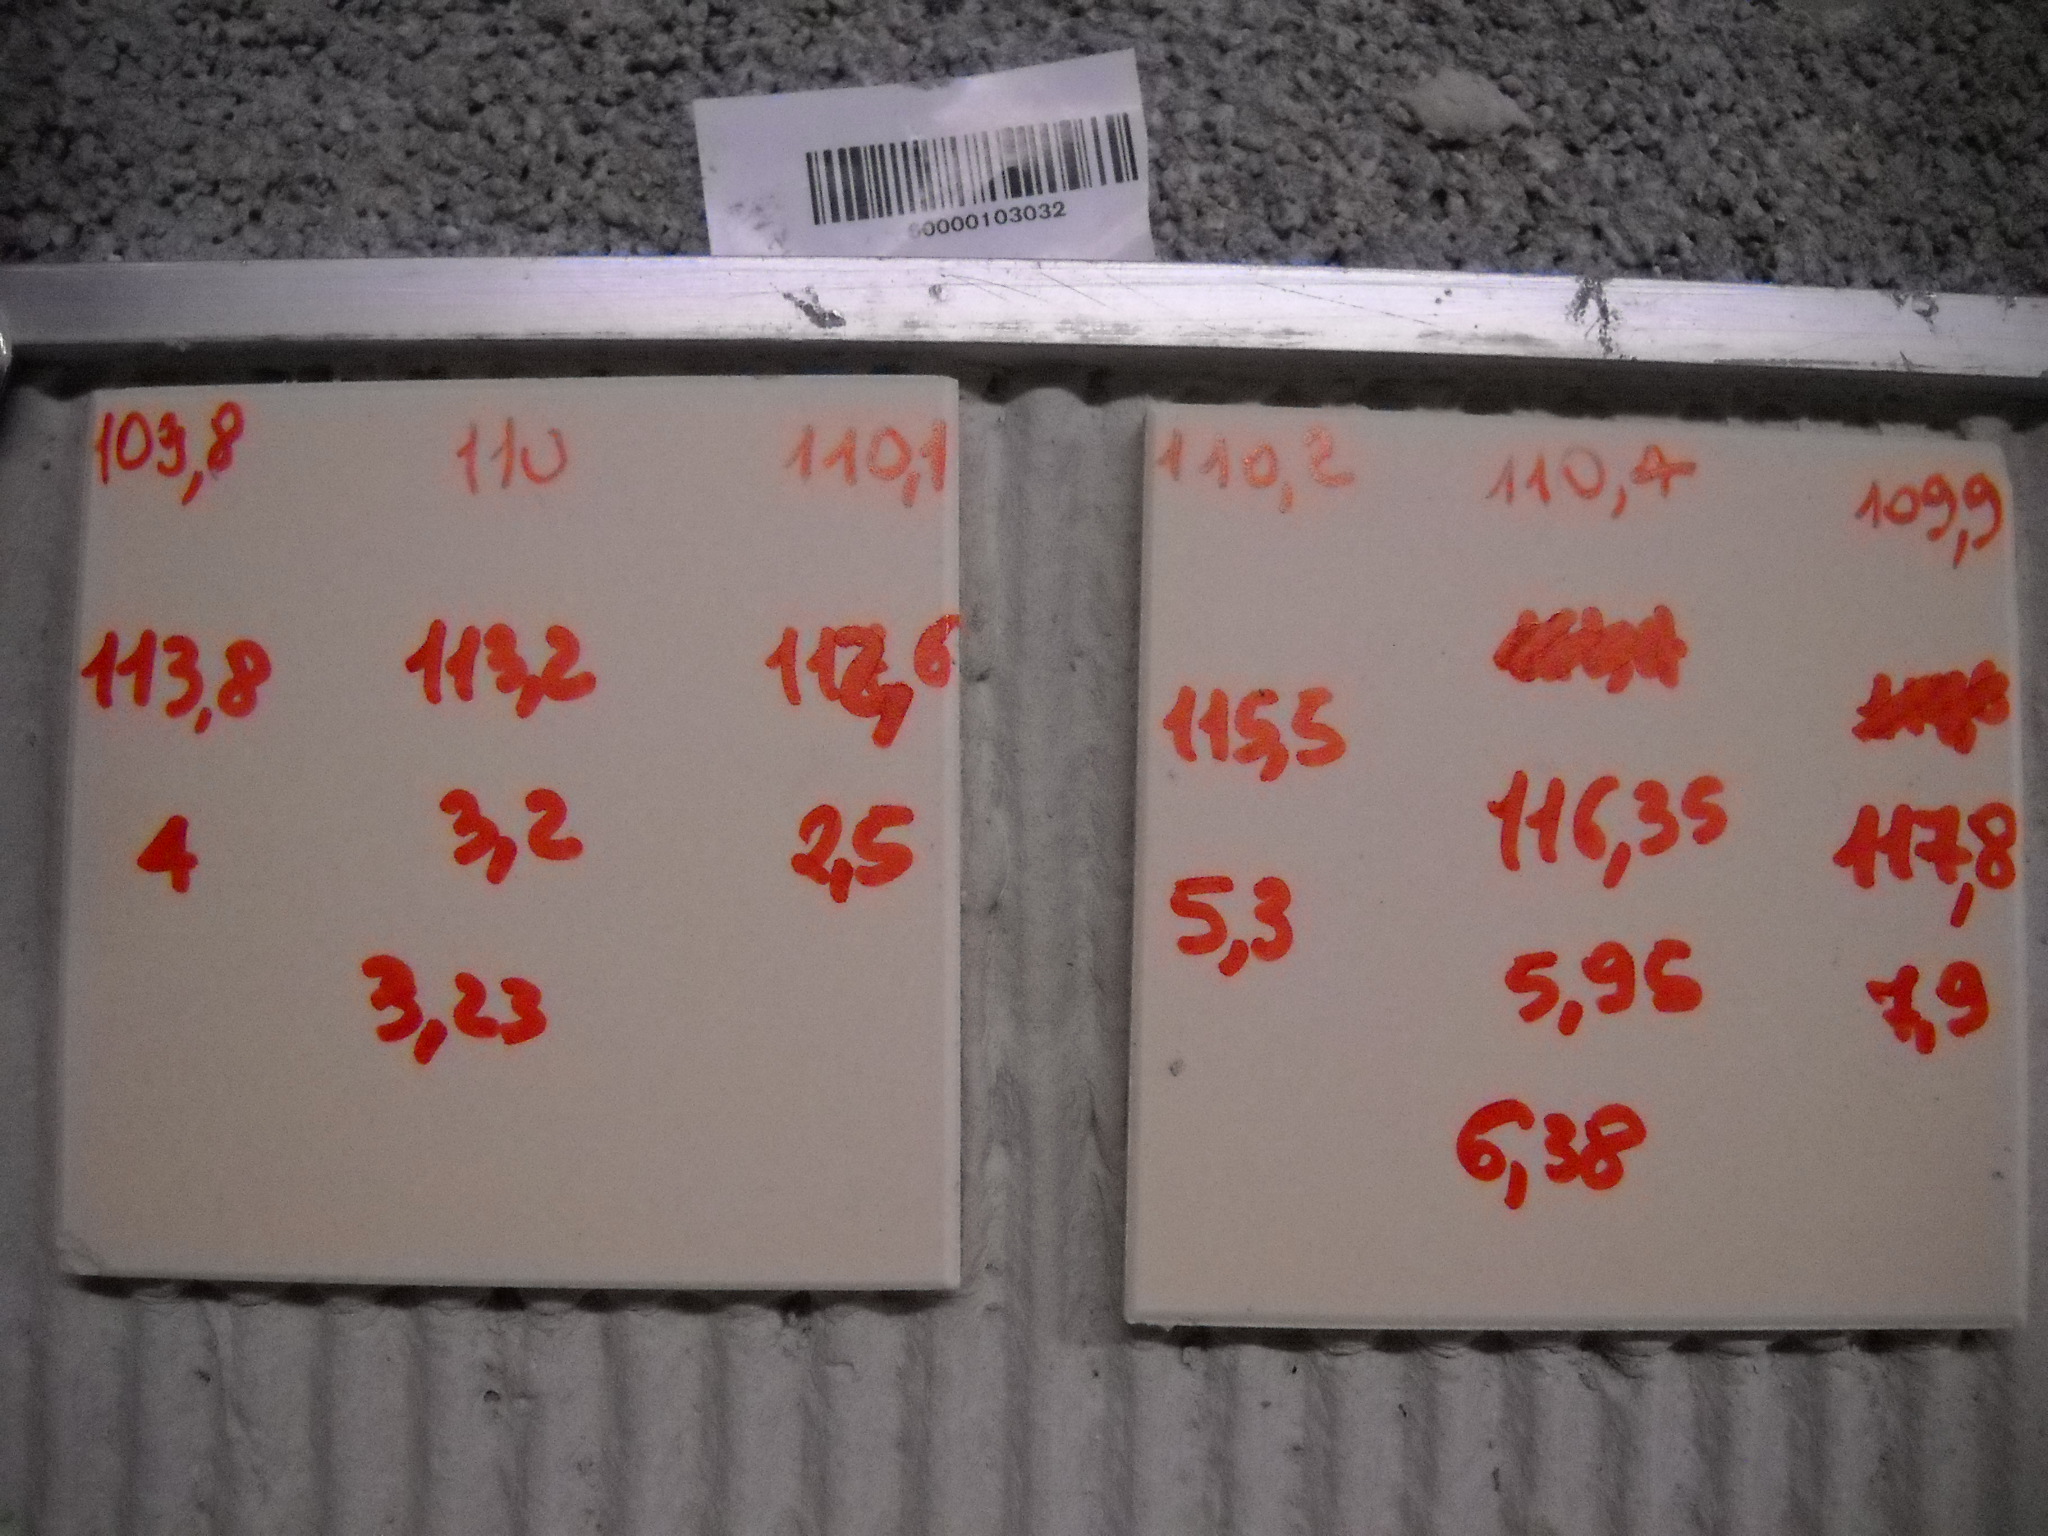 0000103032
109,8 110 110,1
113,8 113,2 112,6
4 3,2 2,5
3,23
110,2 110,4 109,9
115,5 116,35 117,8
5,3 5,95 7,9
6,38